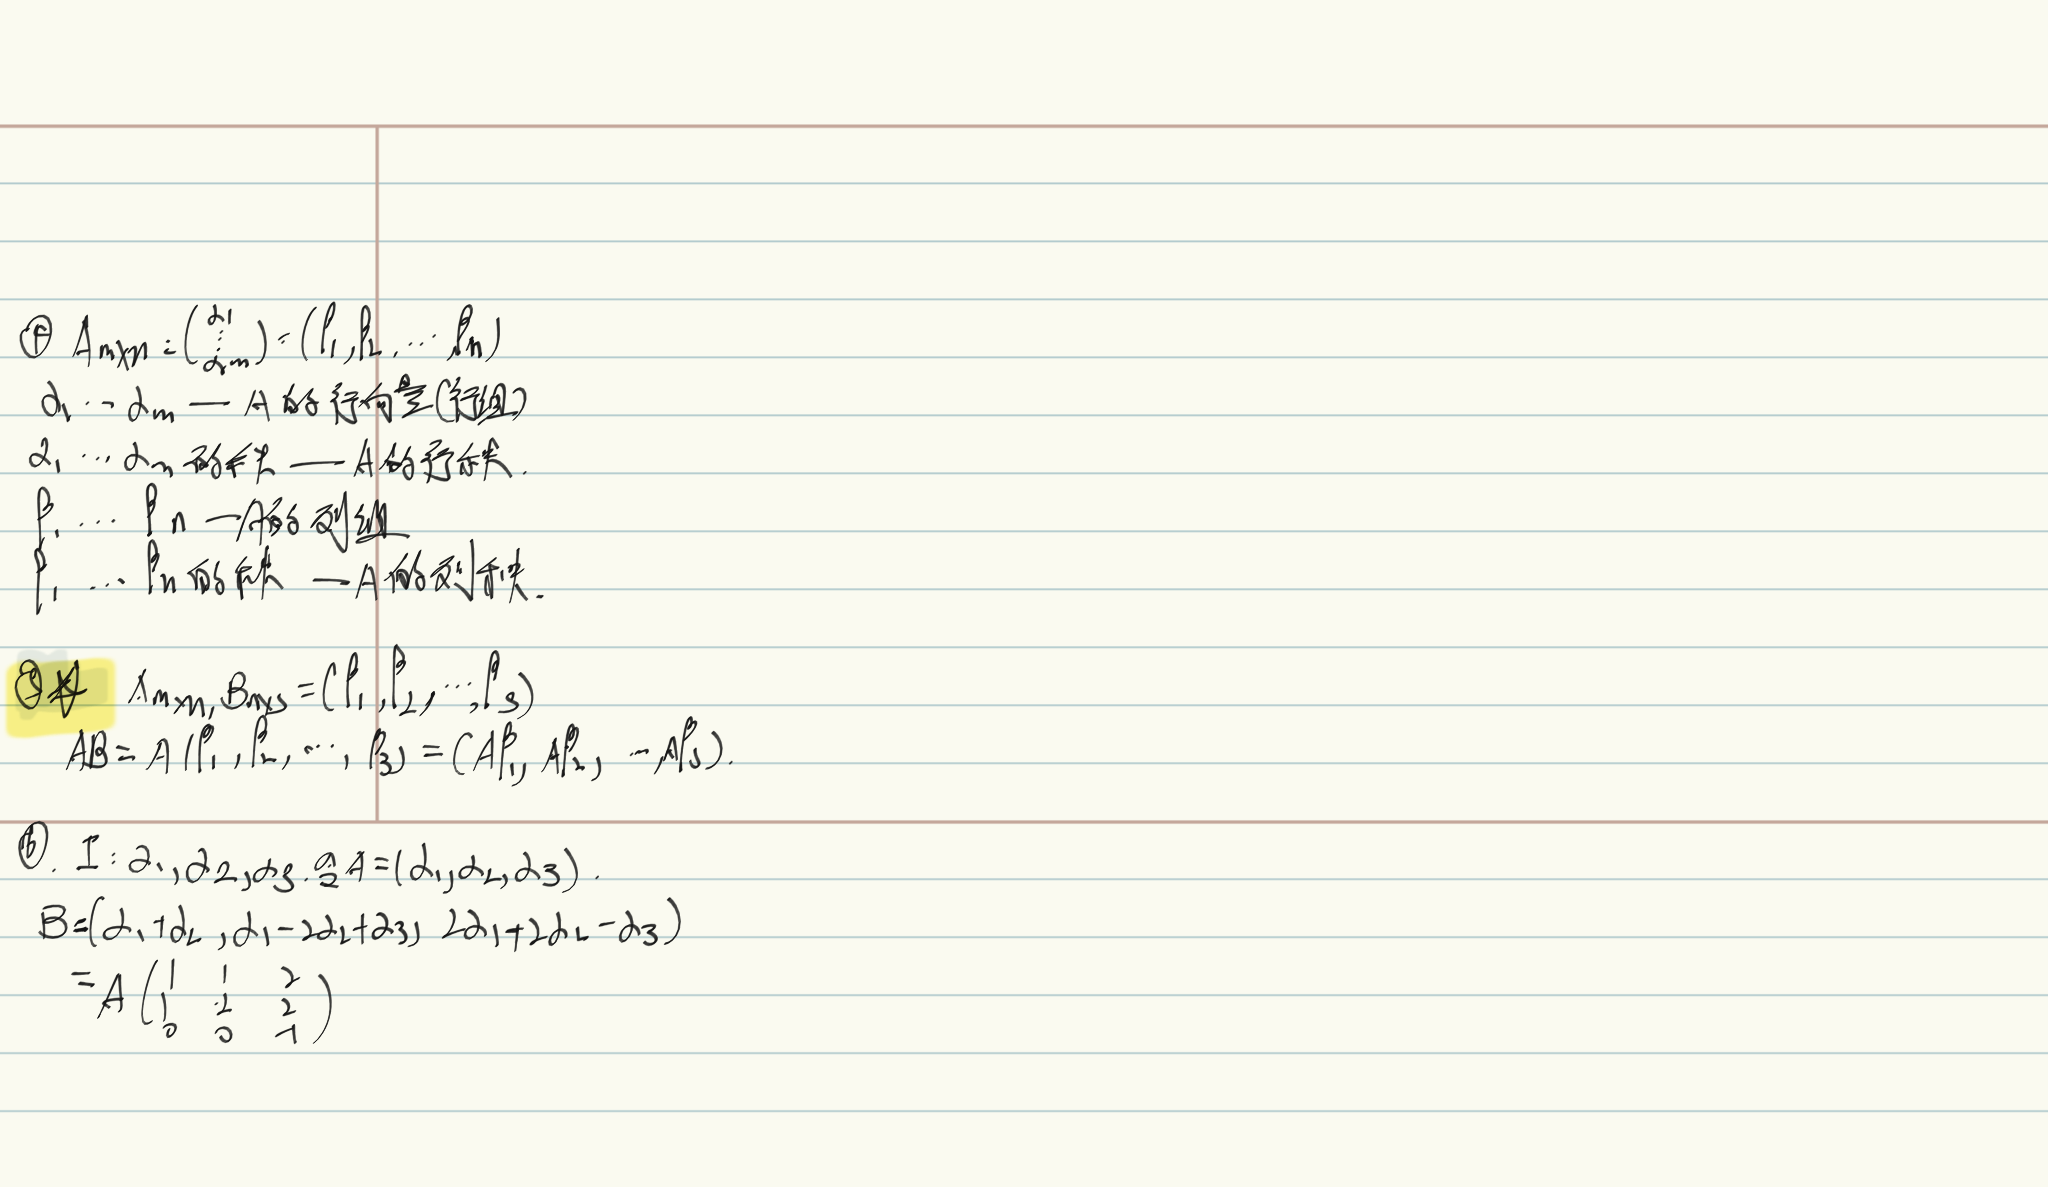 ④ Aₘₓₙ = (α₁ ⋮ αₘ) = (β₁, β₂, … βₙ)
α₁ … αₘ — A的行向量(行组)
α₁ … αₘ的秩 — A的行秩.
β₁ … βₙ — A的列组
β₁ … βₙ的秩 — A的列秩.
⑤☆ Aₘₓₙ, Bₙₓₛ = (β₁, β₂, …, βₛ)
AB = A(β₁, β₂, …, βₛ) = (Aβ₁, Aβ₂, … Aβₛ).
⑥. I: α₁, α₂, α₃. 令A=(α₁, α₂, α₃).
B=(α₁+α₂, α₁-2α₂+α₃, 2α₁+2α₂-α₃)
=A(1 1 2
1 -2 2
0 0 -1)